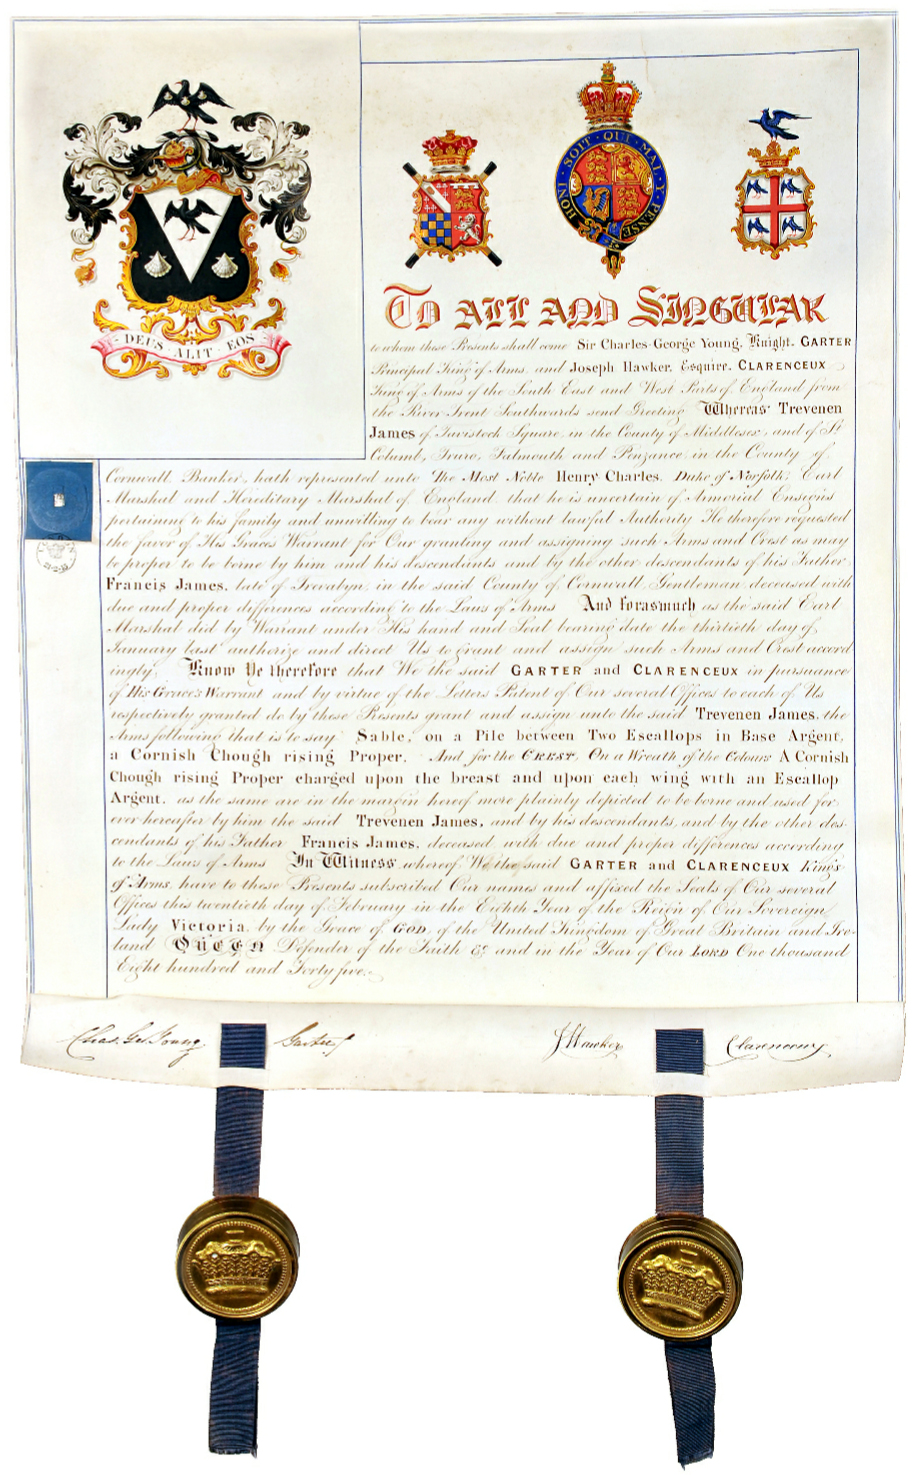 DEUS ALIT EOS
HONI SOIT QUI MAL Y PENSE
To All and Singular
to whom these Presents shall come Sir Charles George Young, Knight, GARTER
Principal King of Arms, and Joseph Hawker, Esquire, CLARENCEUX
King of Arms of the South East and West Parts of England from
the River Trent Southwards send Greeting Whereas Trevenen
James of Tavistock Square, in the County of Middlesex, and of St.
Columb, Truro, Falmouth and Penzance in the County of
Cornwall, Banker, hath represented unto The Most Noble Henry Charles, Duke of Norfolk, Earl
Marshal and Hereditary Marshal of England, that he is uncertain of Armorial Ensigns
pertaining to his family and unwilling to bear any without lawful Authority He therefore requested
the favor of His Grace's Warrant for Our granting and assigning such Arms and Crest as may
be proper to be borne by him and his descendants and by the other descendants of his Father
Francis James, late of Trevalyn, in the said County of Cornwall, Gentleman, deceased with
due and proper differences according to the Laws of Arms And forasmuch as the said Earl
Marshal did by Warrant under His hand and Seal bearing date the thirtieth day of
January last authorize and direct Us to grant and assign such Arms and Crest accord
ingly; Know Ye therefore that We the said GARTER and CLARENCEUX in pursuance
of His Grace's Warrant and by virtue of the Letters Patent of Our several Offices to each of Us
respectively granted do by these Presents grant and assign unto the said Trevenen James, the
Arms following that is to say Sable, on a Pile between Two Escallops in Base Argent,
a Cornish Chough rising Proper, And for the CREST, On a Wreath of the Colours A Cornish
Chough rising Proper charged upon the breast and upon each wing with an Escallop
Argent, as the same are in the margin hereof more plainly depicted to be borne and used for
ever hereafter by him the said Trevenen James, and by his descendants, and by the other des-
cendants of his Father Francis James, deceased, with due and proper differences according
to the Laws of Arms In Witness whereof We the said GARTER and CLARENCEUX Kings
of Arms, have to these Presents subscribed Our names and affixed the Seals of Our several
Offices this twentieth day of February in the Eighth Year of the Reign of Our Sovereign
Lady Victoria, by the Grace of GOD, of the United Kingdom of Great Britain and Ire-
land QUEEN Defender of the Faith &c and in the Year of Our LORD One thousand
Eight hundred and Forty five.
Chas. Geo. Young Garter JHawker Clarenceux